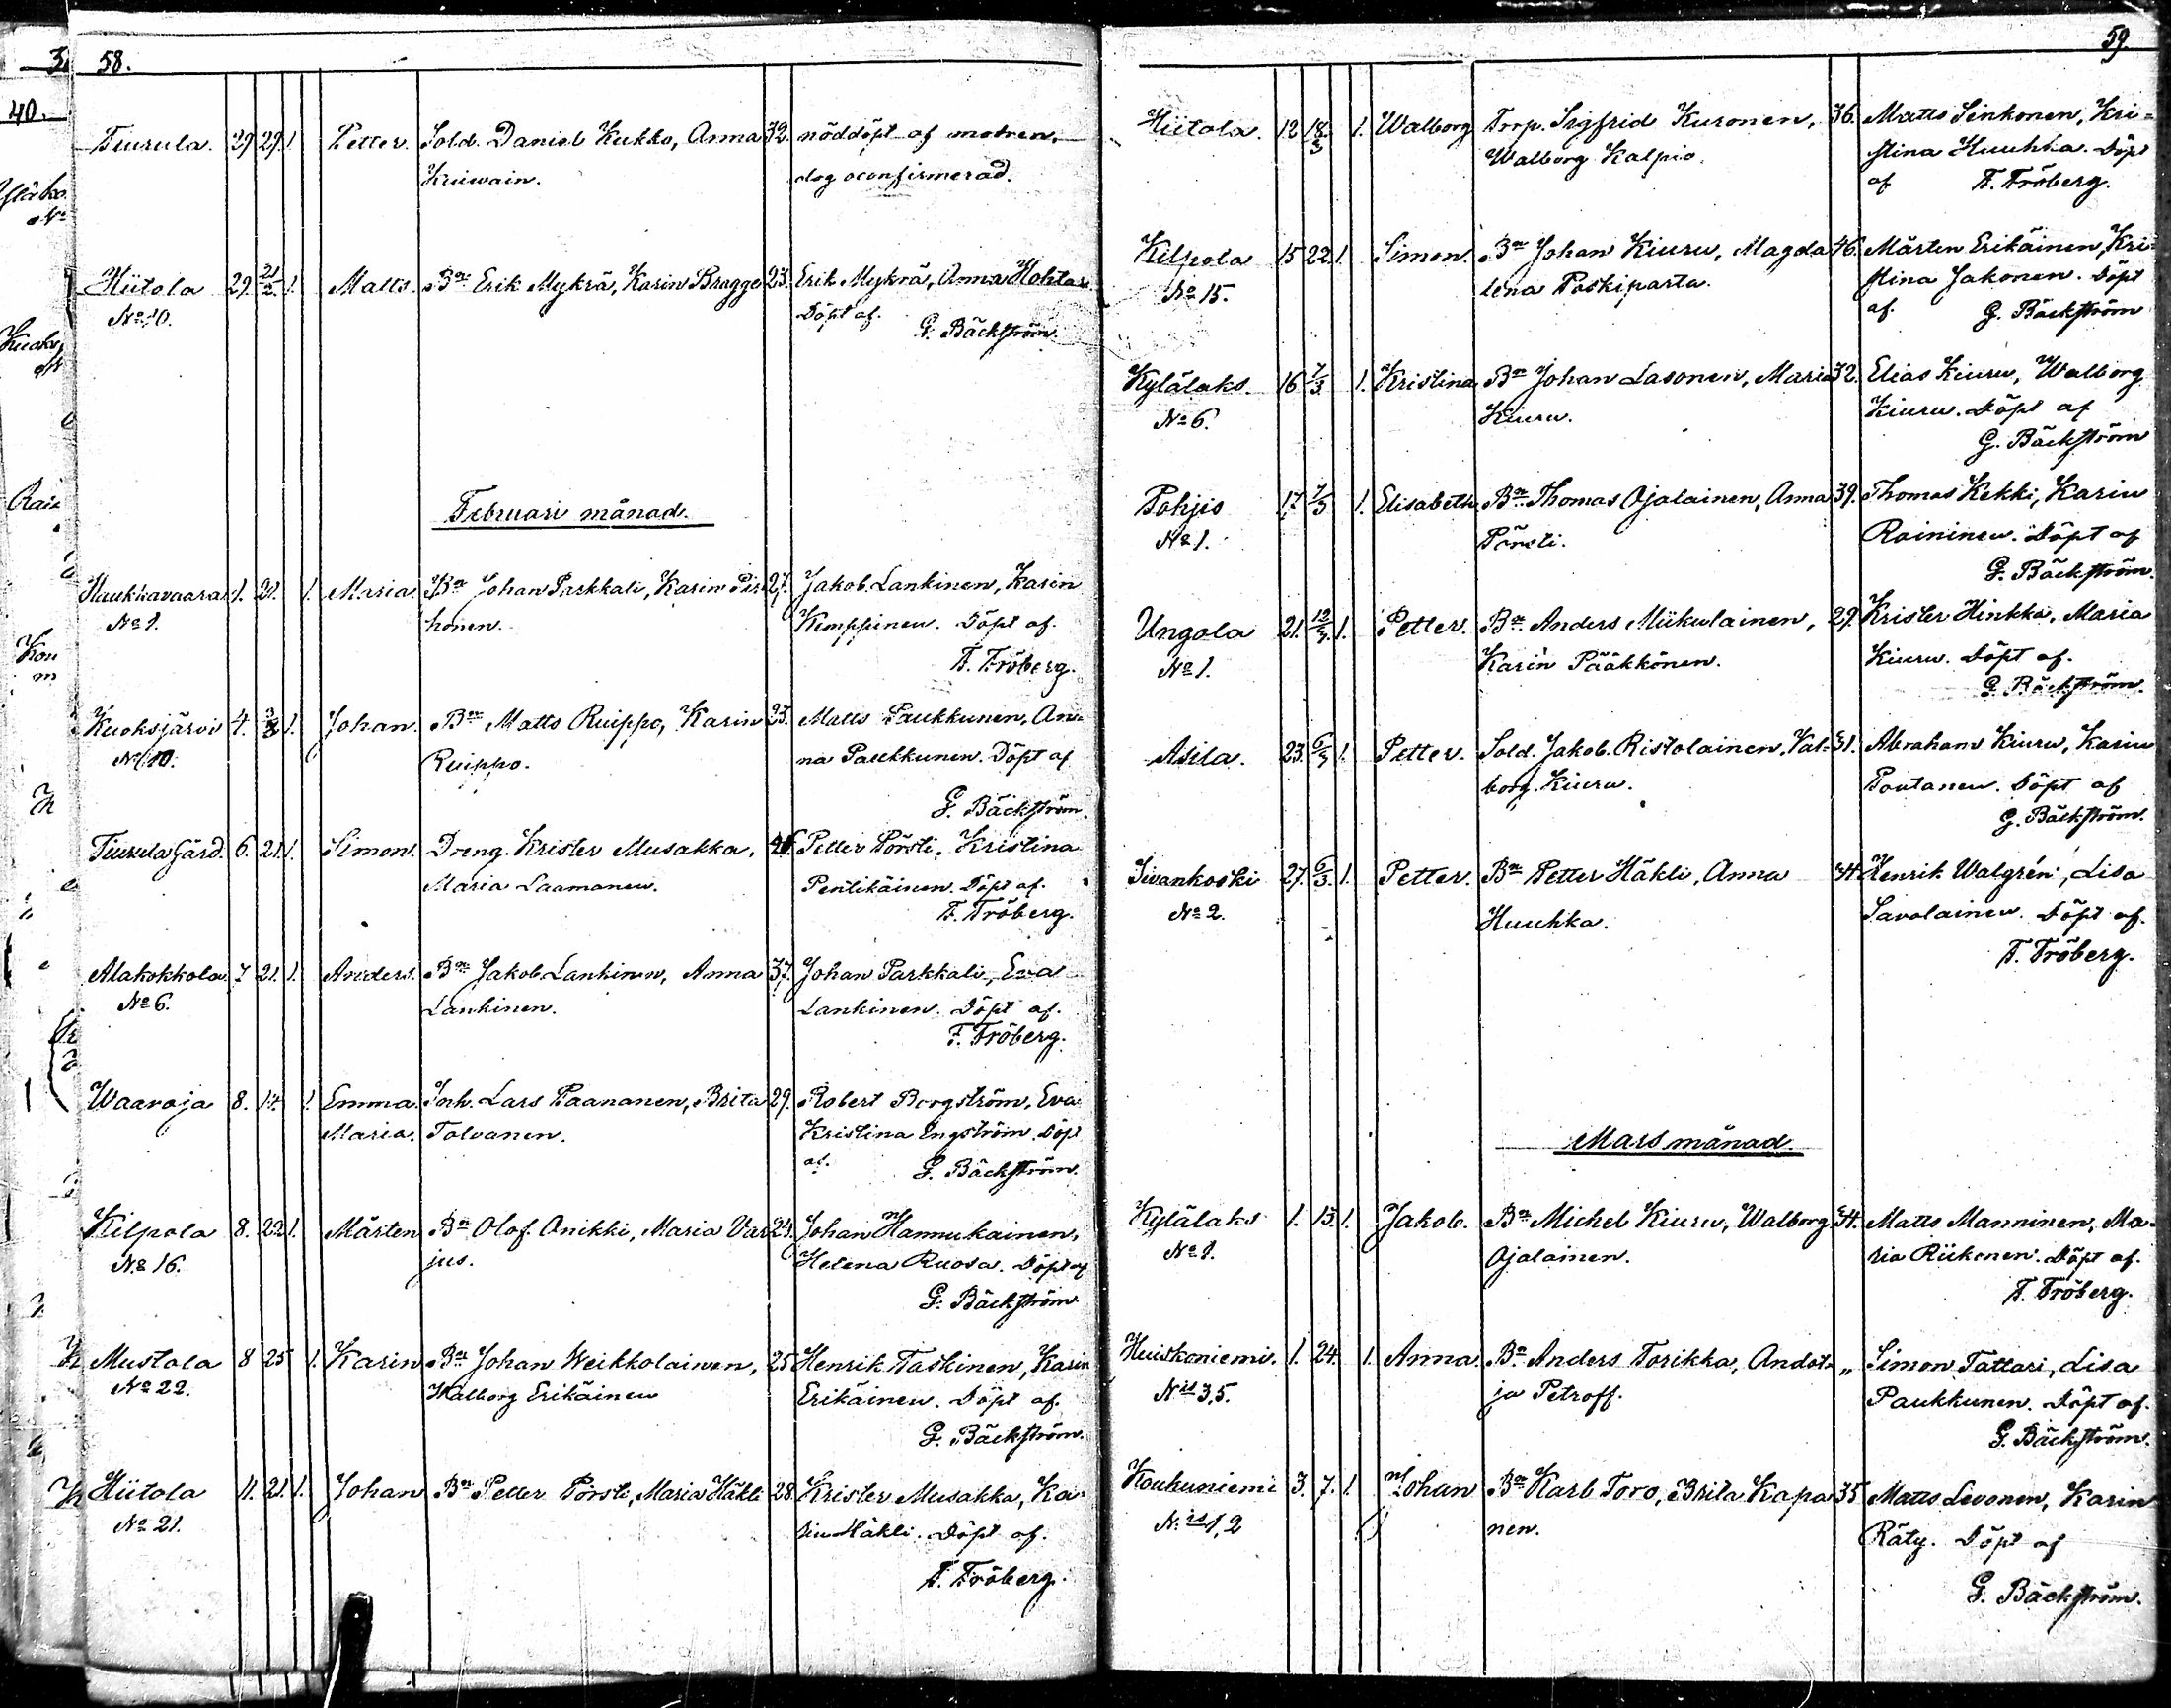 58.
Tiurula. 29 29. 1. Petter. Sold. Daniel Kukko, Anna 32. nöddöpt af modren,
Kriiwain. dog oconfirmerad.
Hiitola 29. 21/2. 1. Matts. Bn Erik Mykrä, Karin Bragge 23. Erik Mykrä, Anna Hohtar
No 10. Döpt af.
G. Bäckström.
Februari månad.
Haukkavaara 1. 21. 1. Maria Bn Johan Parkkali, Karin Pis 27. Jakob Lankinen, Karin
No 1. honen. Kemppinen. Döpt af.
F. Fröberg.
Kuoksjärvi 4. 1. Johan. Bn Matts Ruippo, Karin 23. Matts Paukkunen, An-
No 10. Ruippo. na Paukkunen. Döpt af
G. Bäckström.
Tiurula Gård. 6. 21. 1. Simon. Dreng. Krister Musakka, Petter Pörsti, Kristina
Maria Laamanen. Pentikäinen. Döpt af.
F. Fröberg.
Alakokkola 7 21. 1. Anders. Bn Jakob Lankinen, Anna 37. Johan Parkkali, Eva
No 6. Lankinen. Lankinen. Döpt af.
F. Fröberg.
Waaroja 8. 14. 1. Emma Inh. Lars Paananen, Brita 29. Robert Borgström, Eva
Maria. Tolvanen. Kristina Engström. Döpt
af. G. Bäckström.
Kilpola 8. 22 1. Mårten Bn Olof Onikki, Maria Var 24. Johan Hannukainen,
No 16. jus. Helena Ruosa. Döpt af
G. Bäckström
Mustola 8 25 1. Karin Bn Johan Weikkolainen, 25 Henrik Taskinen, Karin
No 22. Walborg Erikäinen Erikäinen. Döpt af.
G. Bäckström.
Hiitola 11. 21. 1. Johan Bn Petter Pörsti, Maria Häkli 28. Krister Musakka, Ka-
No 21. rin Häkli. Döpt af.
F. Fröberg.
59
Hiitola. 12 18/3 1. Walborg Torp. Sigfrid Kuronen, 36. Matts Sinkonen, Kri-
Walborg Kalpio. stina Huuhka. Döpt
af F. Fröberg.
Kilpola 15 22. 1. Simon. Bn Johan Kiuru, Magda 46. Mårten Erikäinen, Kri-
No 15. lena Paskiparta. stina Jakonen. Döpt
af. G. Bäckström
Kylälaks. 16 7/3 1. Kristina Bn Johan Lasonen, Maria 32. Elias Kiuru, Walborg
No 6. Kiuru. Kiuru. Döpt af
G. Bäckström
Pohjis 17 7/3 1. Elisabeth Bn Thomas Ojalainen, Anna 39. Thomas Kekki, Karin
No 1. Pörsti. Raininen. Döpt af
G. Bäckström.
Ungola 21. 12/3. 1. Petter. Bn Anders Miikulainen, 29. Krister Hinkka, Maria
No 1. Karin Pääkkönen. Kiuru. Döpt af.
G. Bäckström.
Asila. 23. 6/3 1. Petter. Sold. Jakob Ristolainen, Val- 31. Abraham Kiuru, Karin
borg Kiuru. Poutanen. Döpt af
G. Bäckström.
Sivankoski 27. 6/3. 1. Petter. Bn Petter Häkli, Anna 44 Henrik Walgrén, Lisa
No 2. Huuhka. Savolainen. Döpt af.
F. Fröberg.
Mars månad.
Kylälaks 1. 13. 1. Jakob. Bn Michel Kiuru, Walborg 34. Matts Manninen, Ma-
No 1. Ojalainen. ria Riikonen. Döpt af.
F. Fröberg.
Huiskoniemi. 1. 24. 1. Anna. Bn Anders Torikka, Andot- „ Simon Tattari, Lisa
Nis 3,5. ja Petroff. Paukkunen. Döpt af.
G. Bäckström.
Koukuniemi 3. 7. 1. Johan Bn Karl Toro, Brita Kapa 35 Matts Levonen, Karin
Nis 1,2 nen. Räty. Döpt af
G. Bäckström.